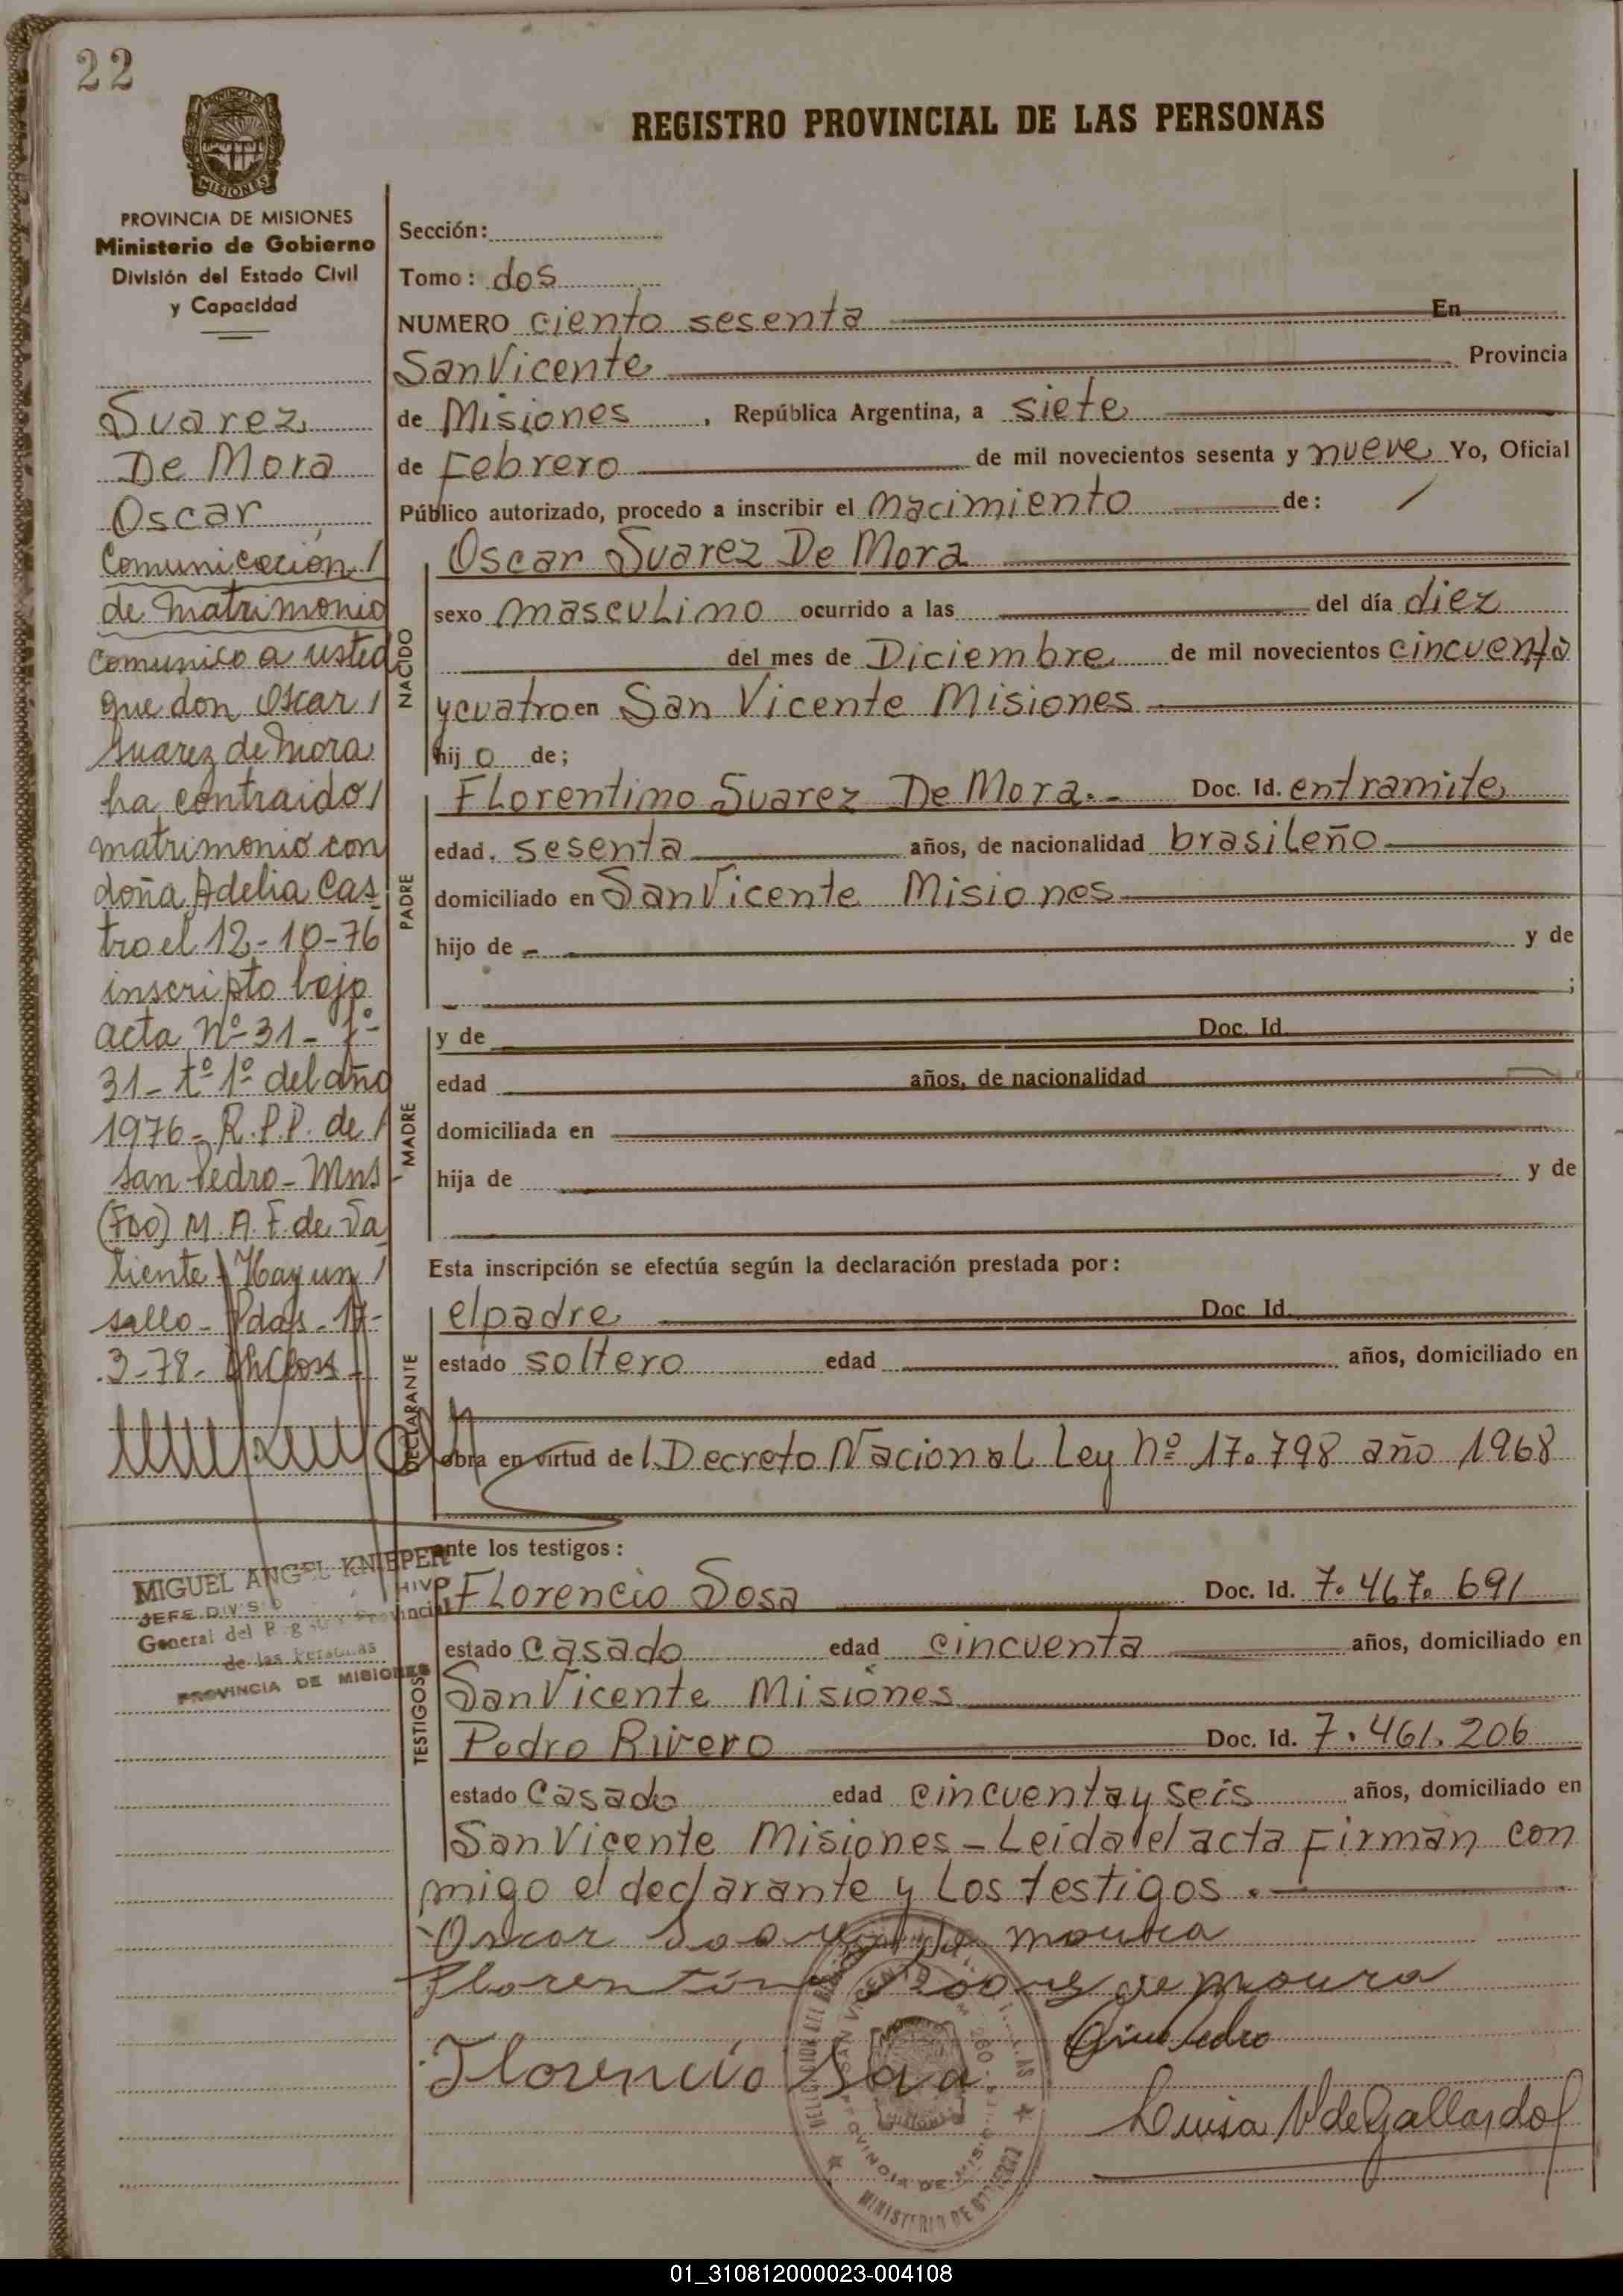 22
REGISTRO PROVINCIAL DE LAS PERSONAS
PROVINCIA DE MISIONES
Ministerio de Gobierno
División del Estado Civil
y Capacidad
Suarez
De Mora
Oscar
Comunicación /
de matrimonio
comunico a usted
que don Oscar /
Suarez de Mora
ha contraido /
matrimonio con
doña Adelia Cas
tro el 12-10-76
inscripto bajo
acta Nº 31 - fº
31 - tº 1º del año
1976 - R.P.P. de /
San Pedro - Mns -
(FDO) M. A. F. de Va
liente / Hay un /
sello - Pdas. 17-
3-78-
MIGUEL ANGEL KNIEPER
JEFE DIVS
General del Registro Provincial
de las Personas
PROVINCIA DE MISIONES
Sección:
Tomo: dos
NUMERO ciento sesenta En
San Vicente Provincia
de Misiones, República Argentina, a siete
de Febrero de mil novecientos sesenta y nueve Yo, Oficial
Público autorizado, procedo a inscribir el nacimiento de: /
NACIDO
Oscar Suarez De Mora
sexo masculino ocurrido a las del día diez
del mes de Diciembre de mil novecientos cincuenta
y cuatro en San Vicente Misiones
hijo de;
PADRE
Florentino Suarez De Mora.- Doc. Id. entramite
edad. sesenta años, de nacionalidad brasileño
domiciliado en San Vicente Misiones
hijo de - y de
;
MADRE
y de Doc. Id.
edad años, de nacionalidad
domiciliada en
hija de y de
Esta inscripción se efectúa según la declaración prestada por:
DECLARANTE
el padre Doc. Id.
estado soltero edad años, domiciliado en
obra en virtud de l Decreto Nacional Ley Nº 17.798 año 1968
ante los testigos:
TESTIGOS
Florencio Sosa Doc. Id. 7.467.691
estado casado edad cincuenta años, domiciliado en
San Vicente Misiones
Pedro Rivero Doc. Id. 7.461.206
estado casado edad cincuenta y seis años, domiciliado en
San Vicente Misiones - Leida el acta Firman con
migo el declarante y Los testigos.-
Oscar Soares de moura
Florentino Soares de moura
Pedro
Florencio Sosa
Luisa V de Gallardo
SAN VICENTE
PROVINCIA DE MISIONES
MINISTERIO DE GOBIERNO
01_310812000023-004108